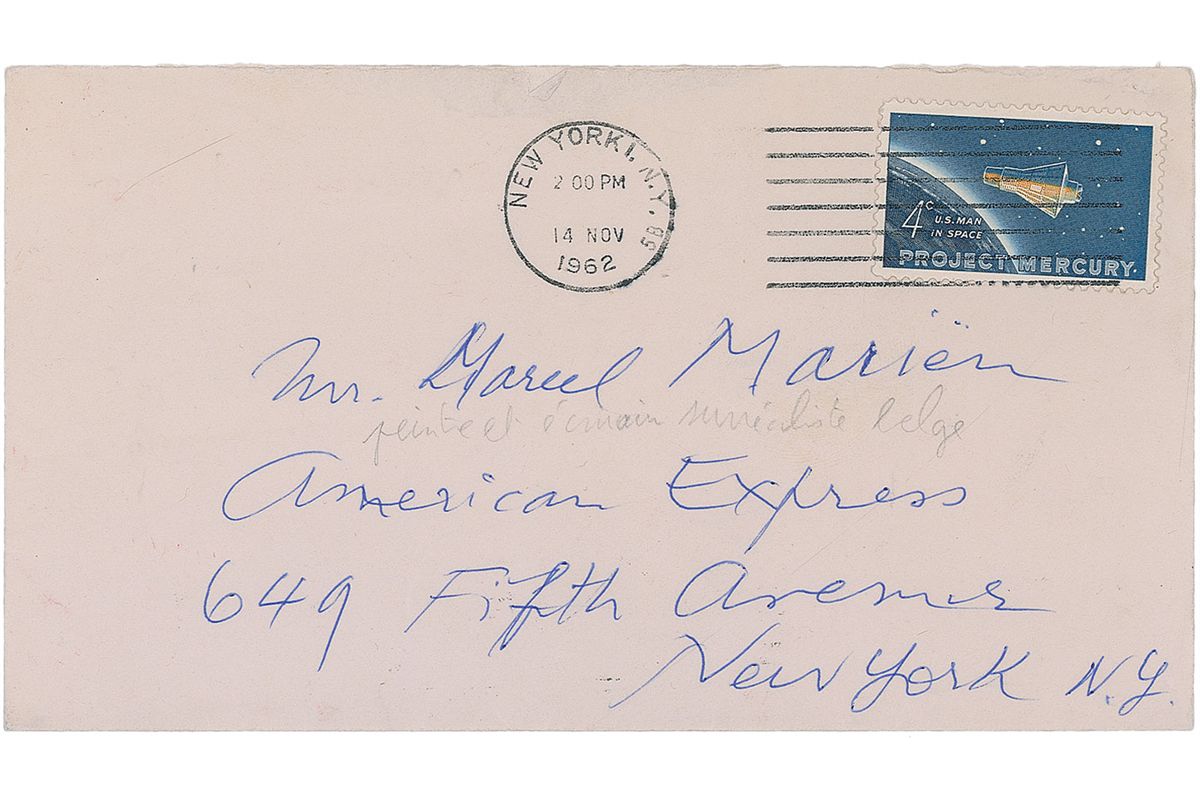 NEW YORK 1, N.Y. 5B
2 00 PM
14 NOV
1962
4¢
U.S. MAN
IN SPACE
PROJECT MERCURY
Mr. Marcel Mariën
peintre et écrivain surréaliste belge
American Express
649 Fifth Avenue
New York N.Y.